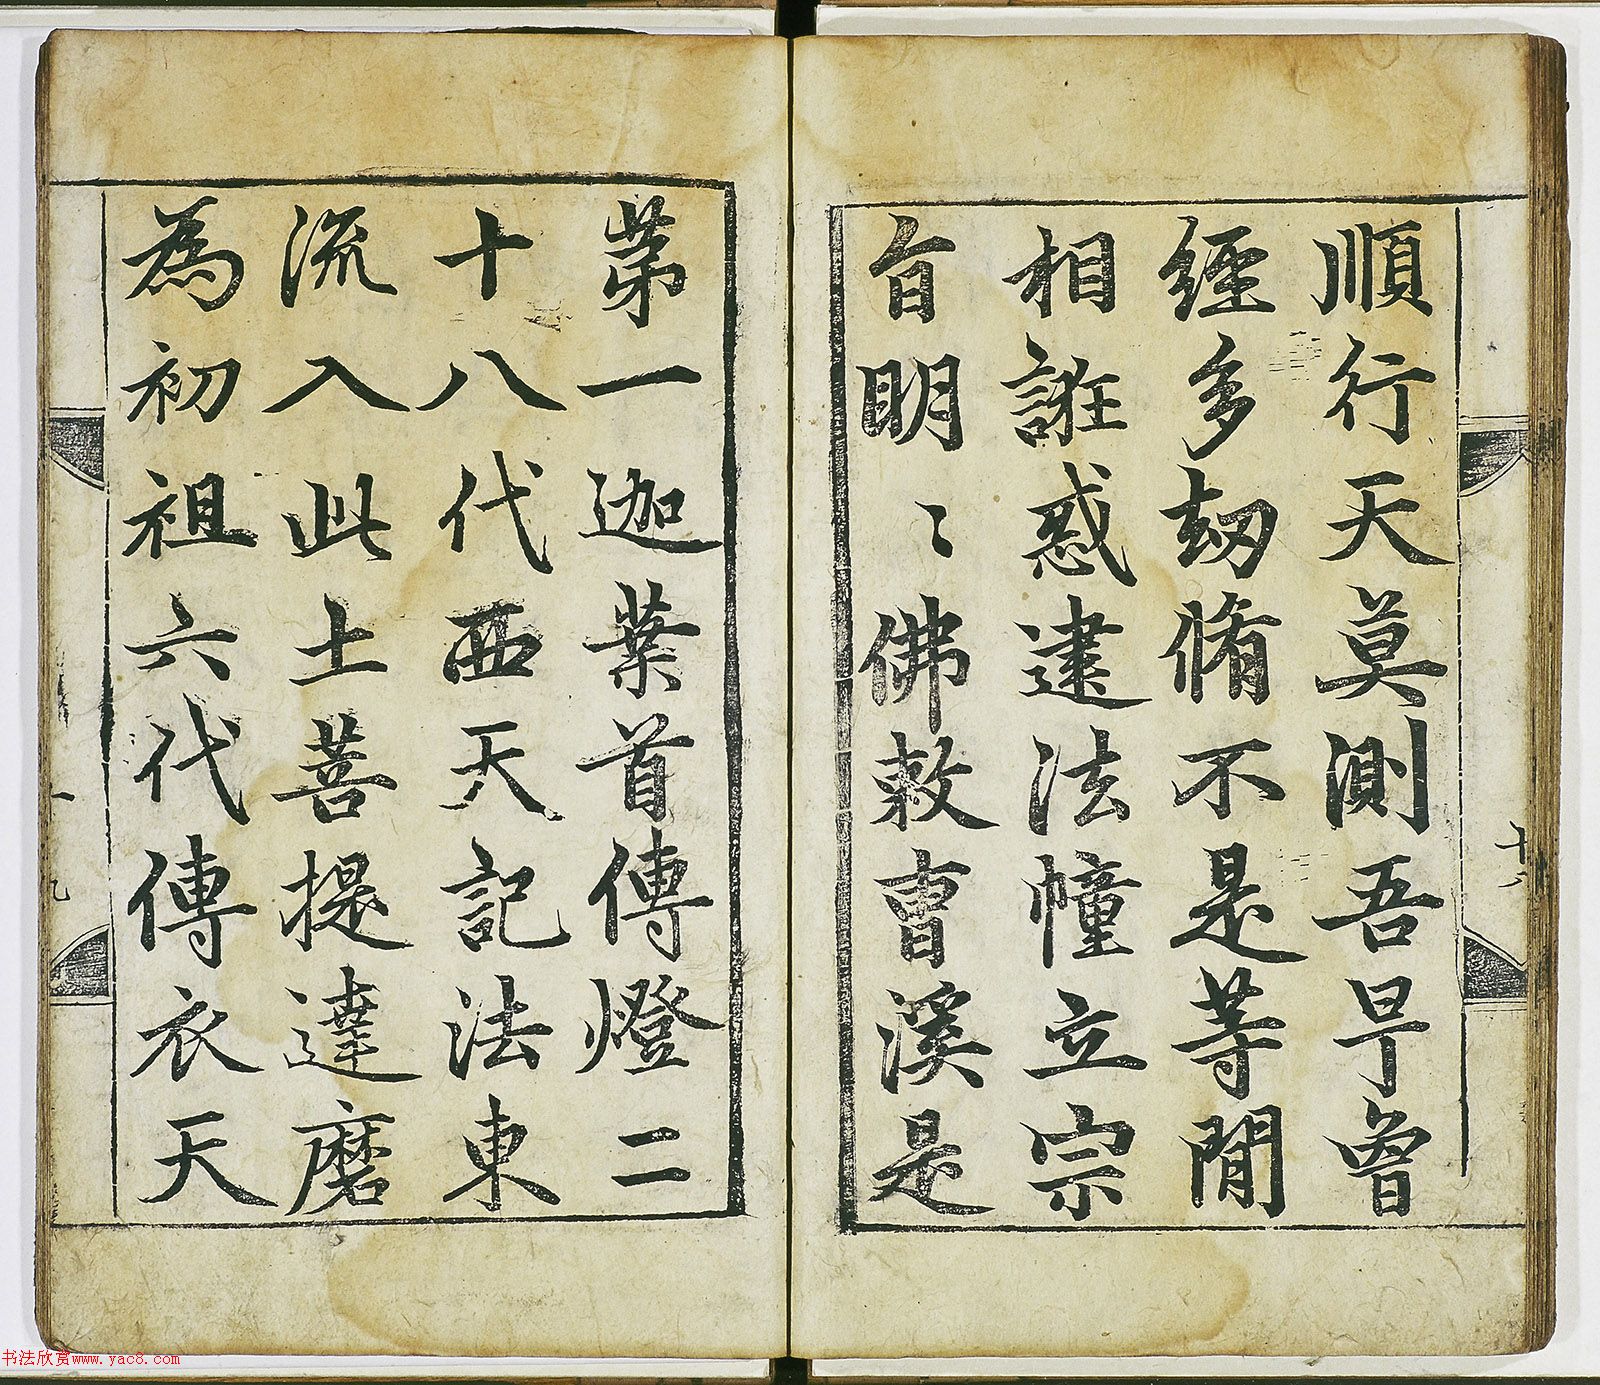 順行天莫測吾早曽
經多劫脩不是等閒
相誑惑建法幢立宗
旨明〻佛敕曺溪是
第一迦葉首傳燈二
十八代西天記法東
流入此土菩提達磨
為初祖六代傳衣天
十八
十九
书法欣赏www.yac8.com